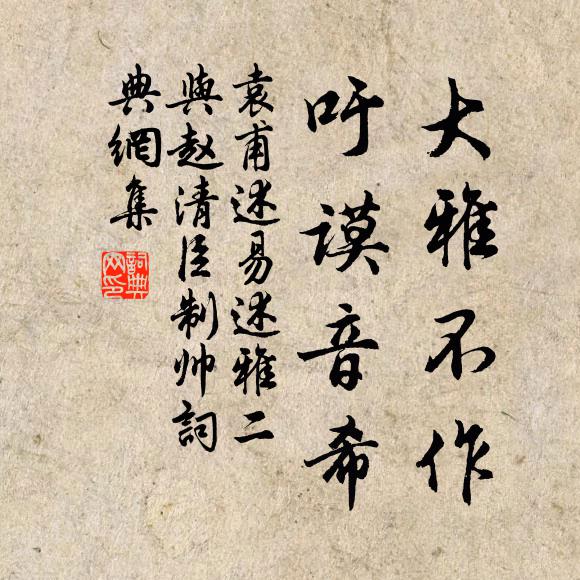 大雅不作
吁謨音希
袁甫述易述雅二
與赵清臣制帅詞
典網集
詞典網印